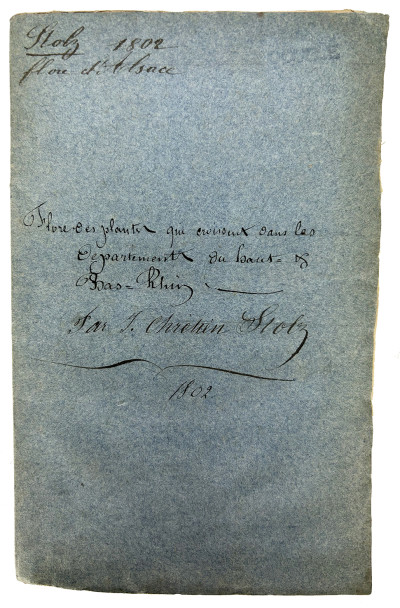 Stolz 1802
flore d'Alsace
Flore des plantes qui croissent dans les
Departements du haut- &
Bas-Rhin
Par J. Chrétien Stolz
1802